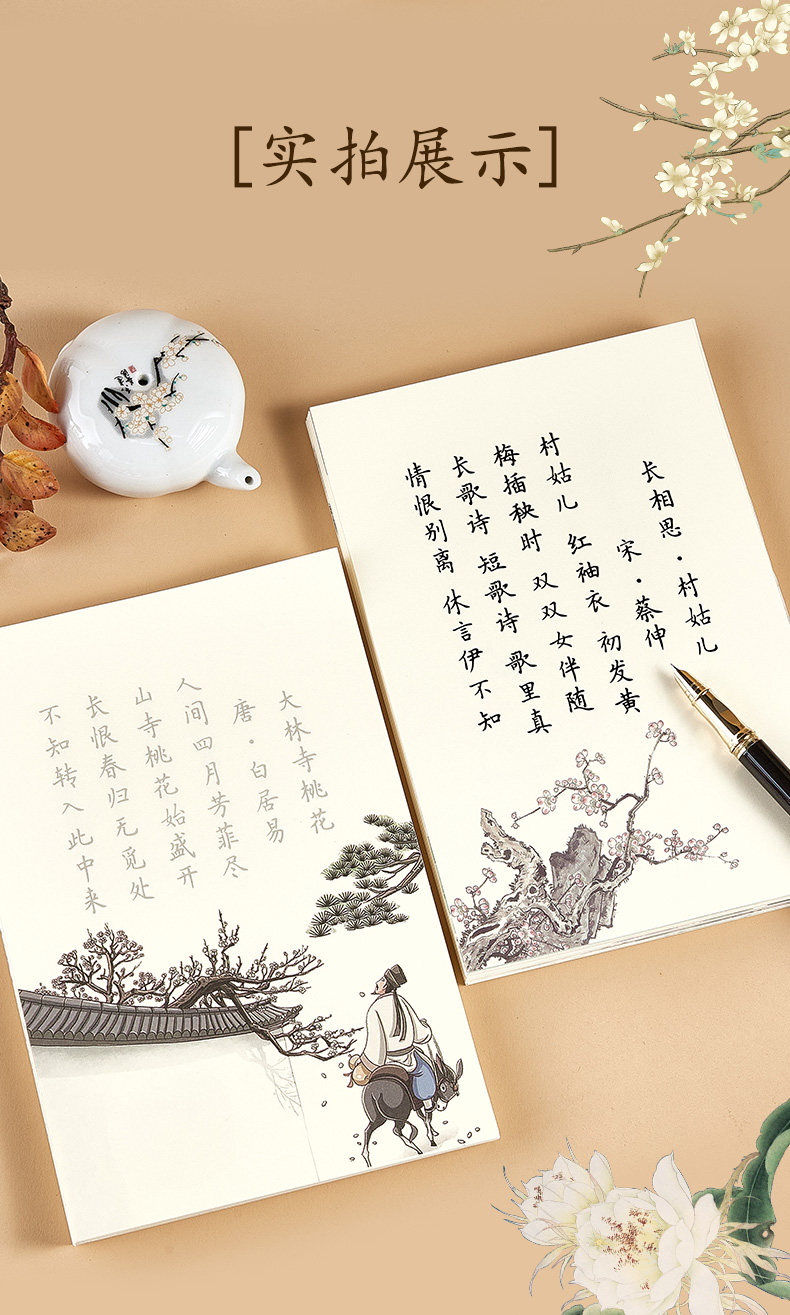 [实拍展示]
长相思·村姑儿
宋·蔡伸
村姑儿 红袖衣 初发黄
梅插秧时 双双女伴随
长歌诗 短歌诗 歌里真
情恨别离 休言伊不知
大林寺桃花
唐·白居易
人间四月芳菲尽
山寺桃花始盛开
长恨春归无觅处
不知转入此中来